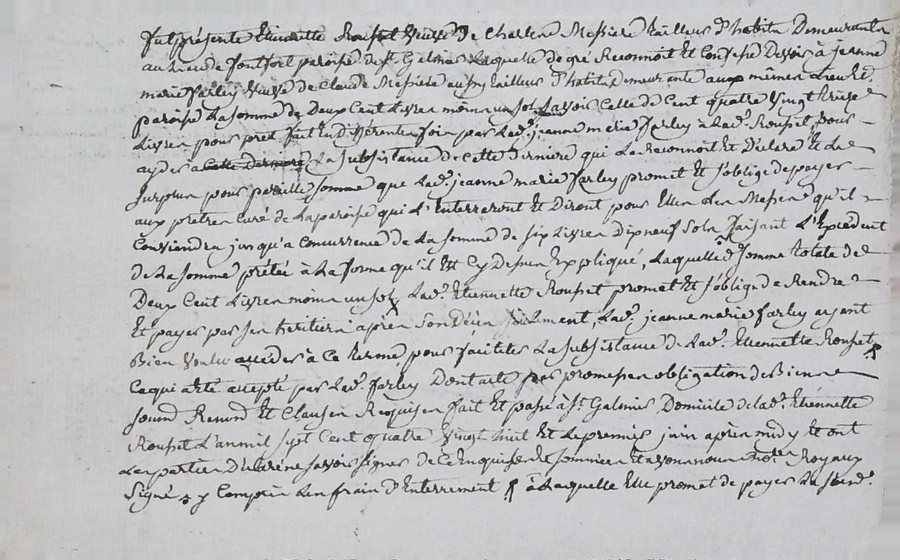 fut présente Etiennette Rousset veuve de Charlen Messiere tailleur d'habitn Demeurante
au lieu de fontfort paroisse de st. Galmier Laquelle de gré Reconnoit et Confesse Devoir à jeanne
marie farley veuve de Claude Messiere aussy tailleur D'habit, demeurante aux mêmen lieu et
paroisse La somme de Deux Cent Livren moinn un sol savoir Celle de Cent quatre vingt treize
Livren pour prêt fait En differenten foin par Lad.e jeanne marie farley à Lad.e Rousset pour
ayder a cette derniere La subsistance de cette derniere qui La Reconnoit Et Declare Et Le
surplun pour pareille somme que Lad.e jeanne marie farley promet Et s'oblige de payer
aux pretren Curé de La paroisse qui L'Enterreront Et Diront pour Elle Len Messen qu'il
Conviendra jusqu'a Concurrence de La somme de six Livren Dixneuf soln faisant L'Excedent
de La somme prêtée à La forme qu'il Est Cy Dessun Expliqué, Laquelle somme totale de
Deux Cent Livren moinn un sol Lad.e Etiennette Rousset promet Et s'oblige de Rendre
Et payer par sen heritiern aprèn son Décèn seulement, Lad.e jeanne marie farley ayant
Bien voulu acceder à Ce terme pour faciliter La subsistance de Lad.e Etiennette Rousset
Ce qui a Eté accepté par Lad.e farley Dont acte par promessen obligation de Bienn
soumn Renon.d Et Clausen Requisen fait Et passé à st. Galmier Domicile de lad.e Etiennette
Rousset L'an mil sept Cent quatre vingt huit Et Le premier juin aprèn midy Et ont
Len partien Déclaré ne savoir signer de Ce Enquisen Et sommeen Et avonn nous Not.re Royaux
signé y Comprin Len frain d'Enterrement à Laquelle Elle promet de payer La